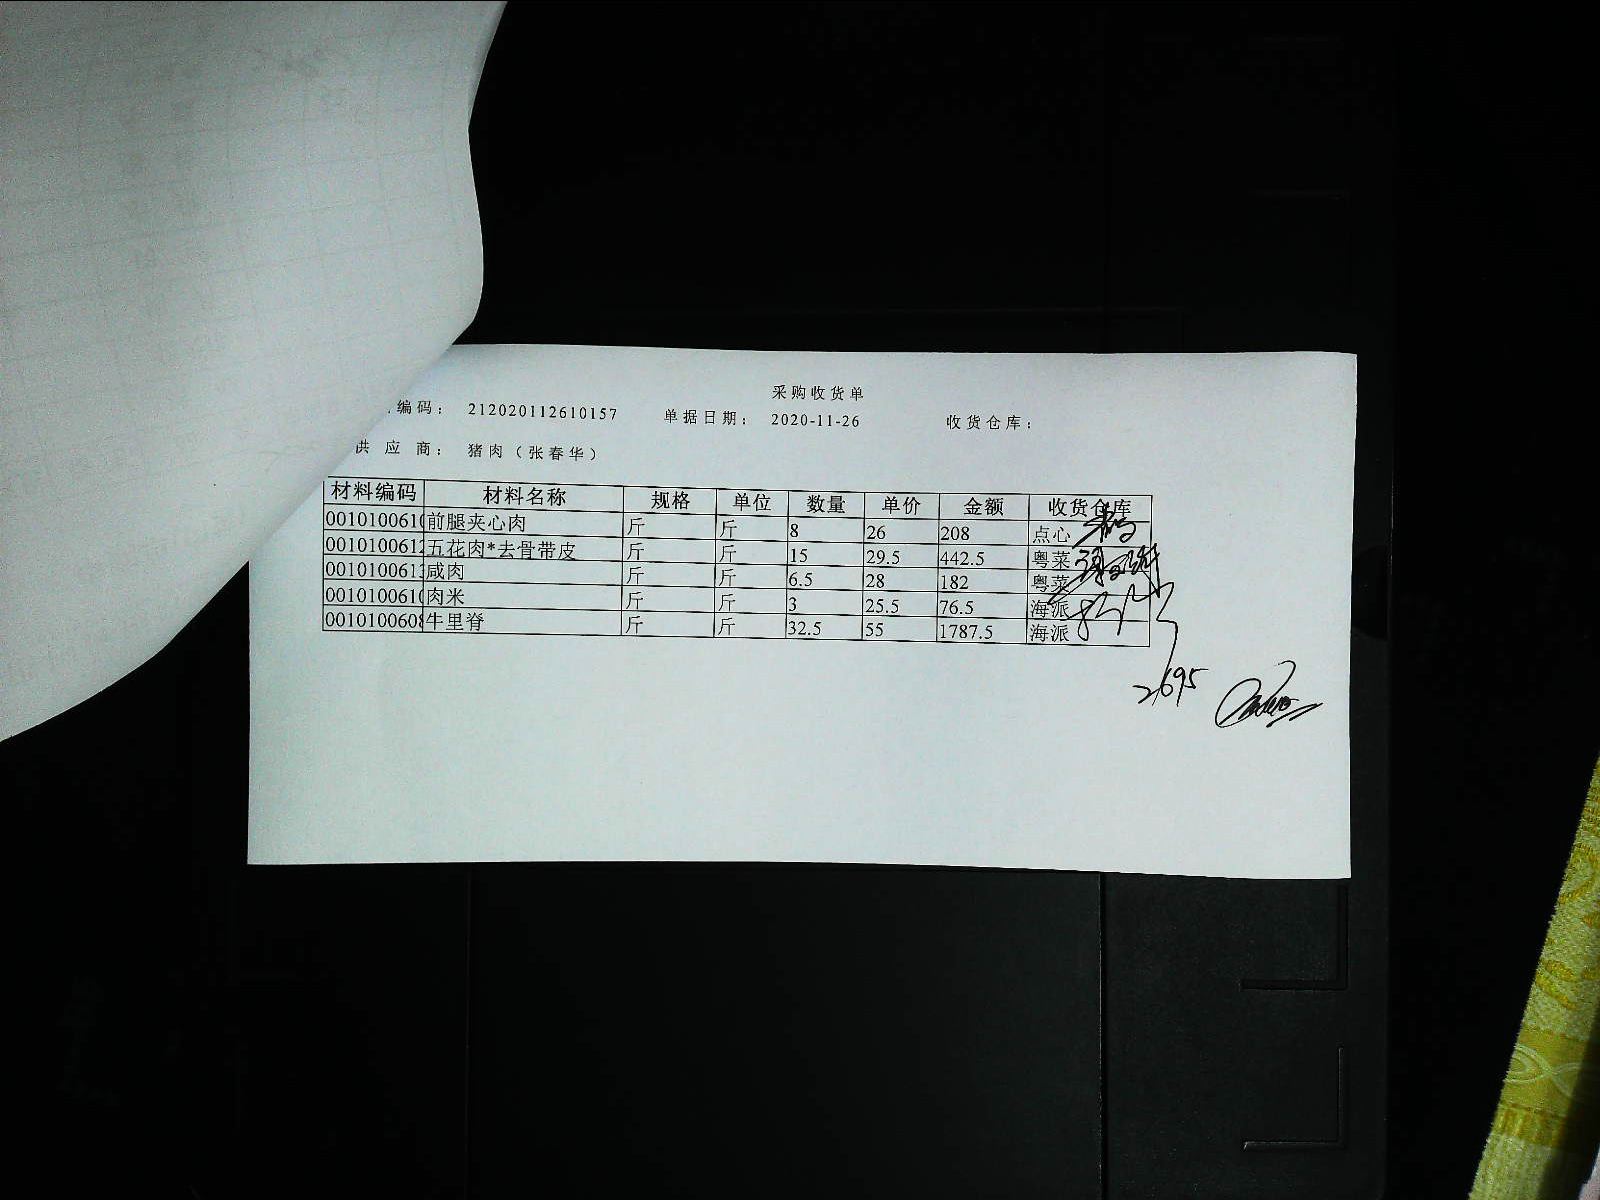 采购收货单
编码： 212020112610157 单据日期： 2020-11-26 收货仓库：
供应商： 猪肉（张春华）
材料编码 材料名称 规格 单位 数量 单价 金额 收货仓库
0010100610 前腿夹心肉 斤 斤 8 26 208 点心
0010100612 五花肉*去骨带皮 斤 斤 15 29.5 442.5 粤菜
0010100613 咸肉 斤 斤 6.5 28 182 粤菜
0010100610 肉米 斤 斤 3 25.5 76.5 海派
0010100608 牛里脊 斤 斤 32.5 55 1787.5 海派
2695